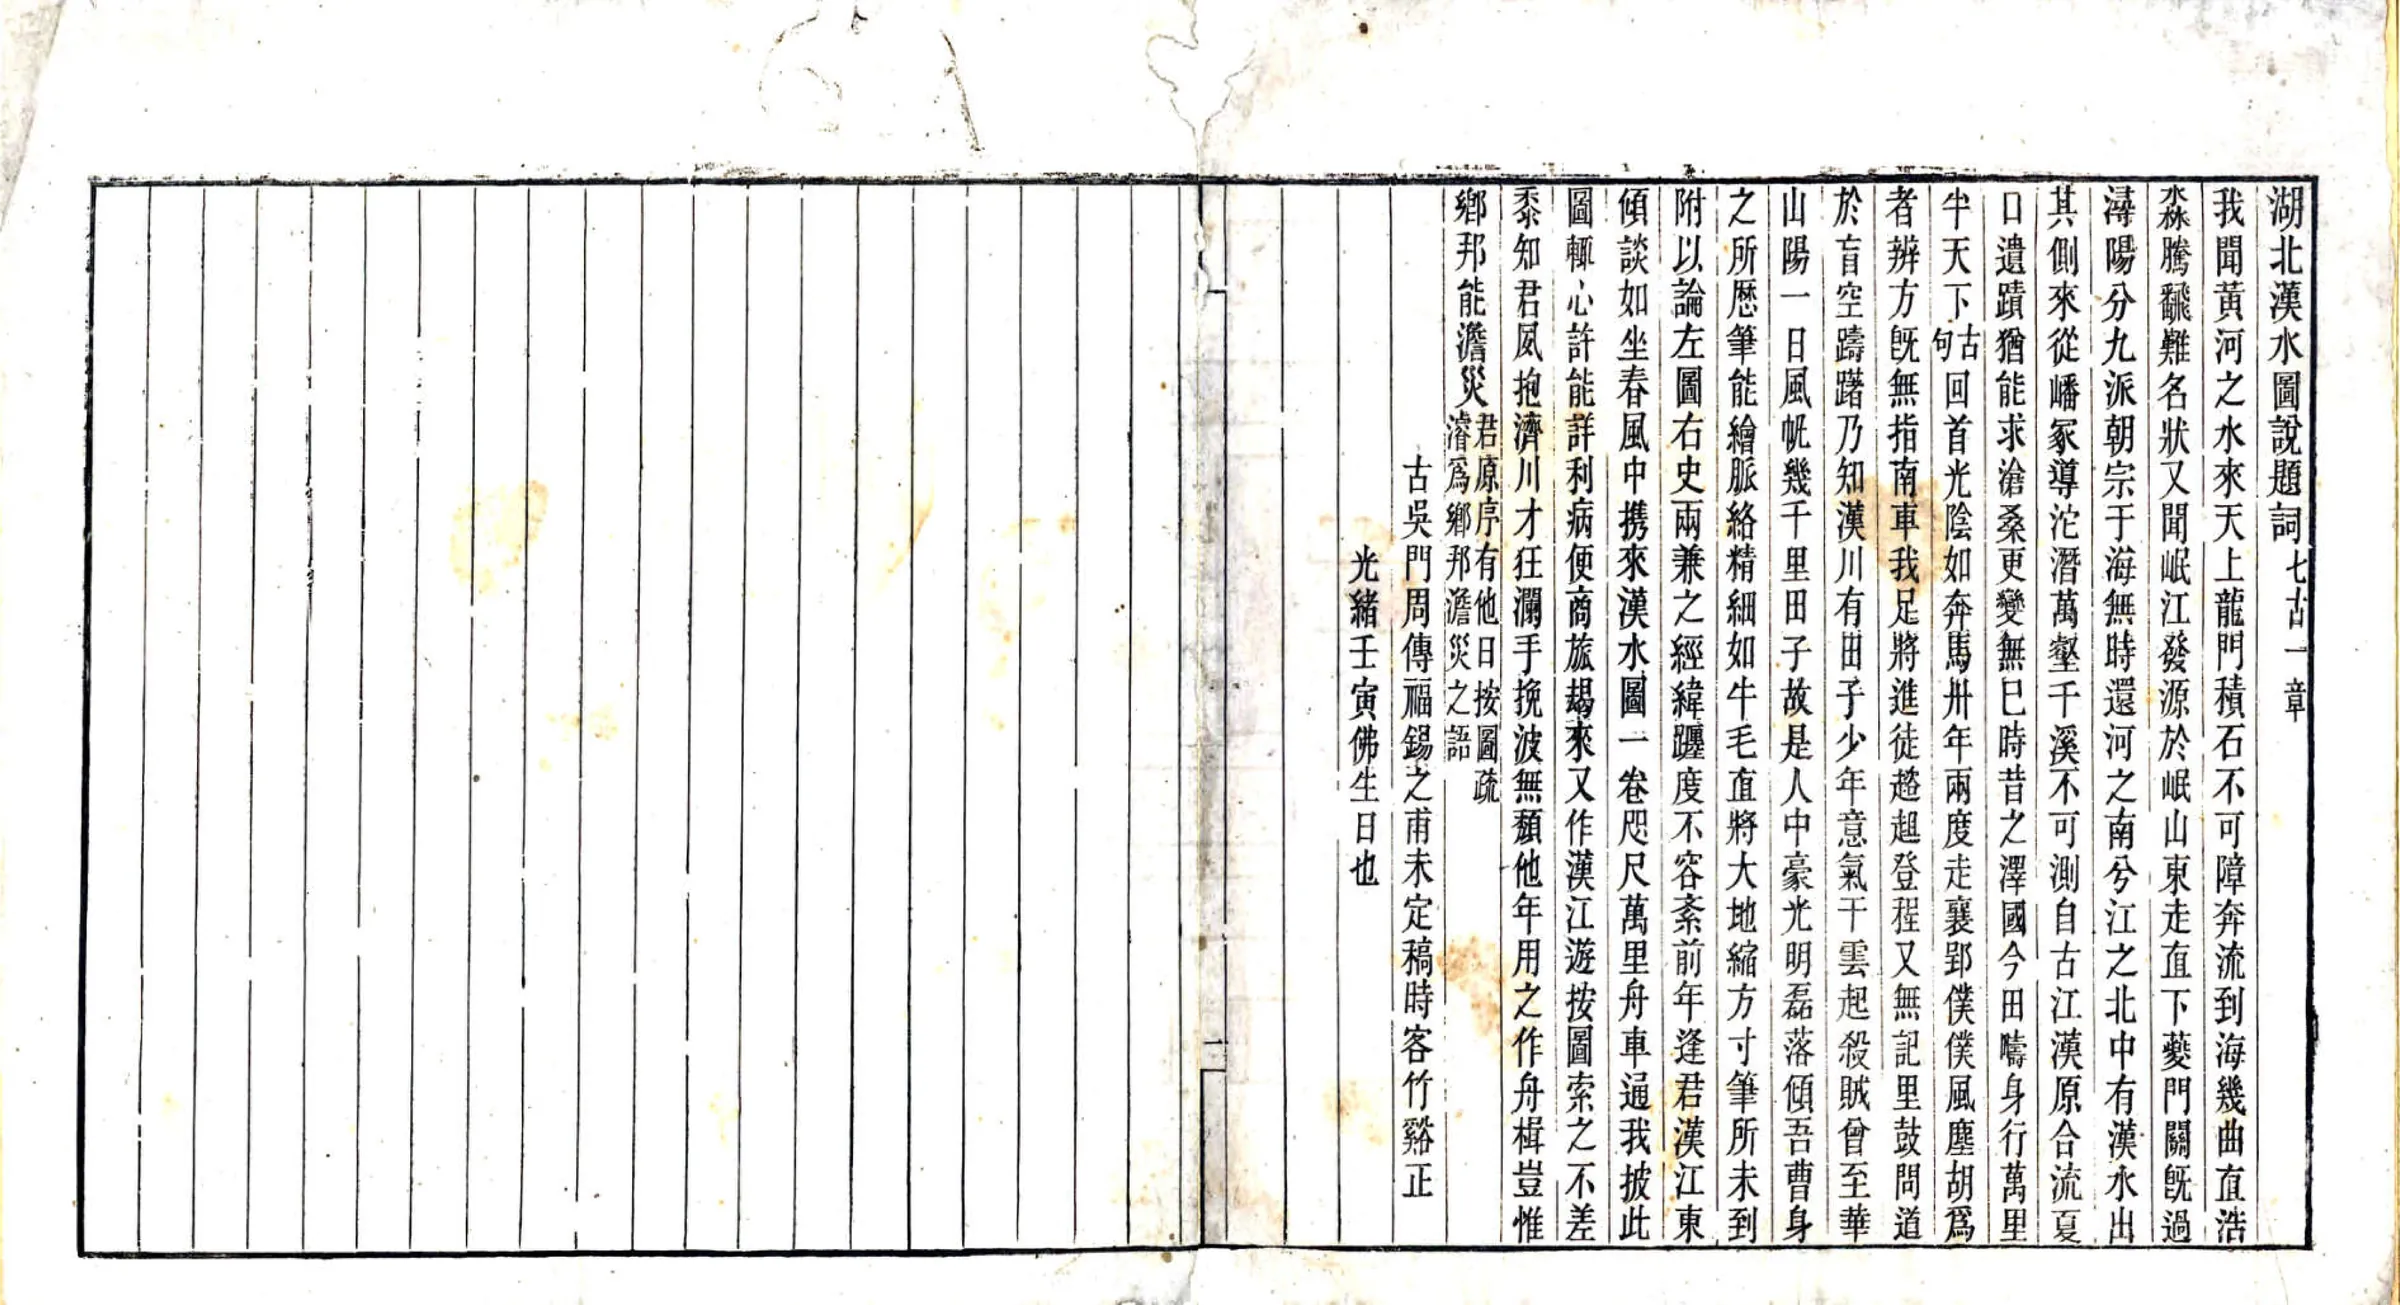 湖北漢水圖說題詞七古一章
我聞黃河之水來天上龍門積石不可障奔流到海幾曲直浩
淼騰飜難名狀又聞岷江發源於岷山東走直下夔門關既過
潯陽分九派朝宗于海無時還河之南兮江之北中有漢水出
其側來從嶓冢導沱潛萬壑千溪不可測自古江漢原合流夏
口遺蹟猶能求滄桑更變無已時昔之澤國今田疇身行萬里
半天下古句回首光陰如奔馬卅年兩度走襄郢僕僕風塵胡爲
者辨方旣無指南車我足將進徒趑趄登程又無記里鼓問道
於盲空躊躇乃知漢川有田子少年意氣干雲起殺賊曾至華
山陽一日風帆幾千里田子故是人中豪光明磊落傾吾曹身
之所歷筆能繪脈絡精細如牛毛直將大地縮方寸筆所未到
附以論左圖右史兩兼之經緯躔度不容紊前年逢君漢江東
傾談如坐春風中携來漢水圖一卷咫尺萬里舟車通我披此
圖輒心許能詳利病便商旅朅來又作漢江遊按圖索之不差
黍知君夙抱濟川才狂瀾手挽波無頽他年用之作舟楫豈惟
鄉邦能澹災君原序有他日按圖疏濬爲鄉邦澹災之語
古吳門周傳福錫之甫未定稿時客竹谿正
光緒壬寅佛生日也
一